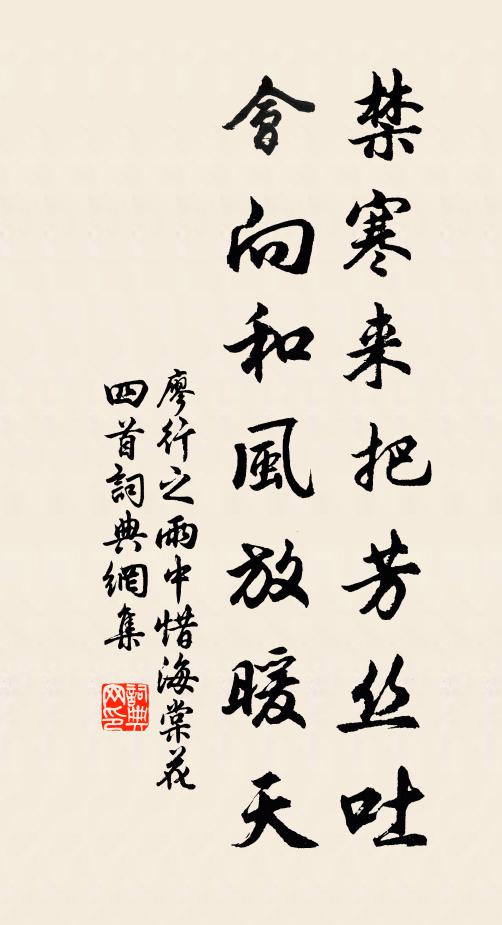 禁寒来把芳丝吐
會向和風放暖天
廖行之雨中惜海棠花
四首詞典網集
詞典网印